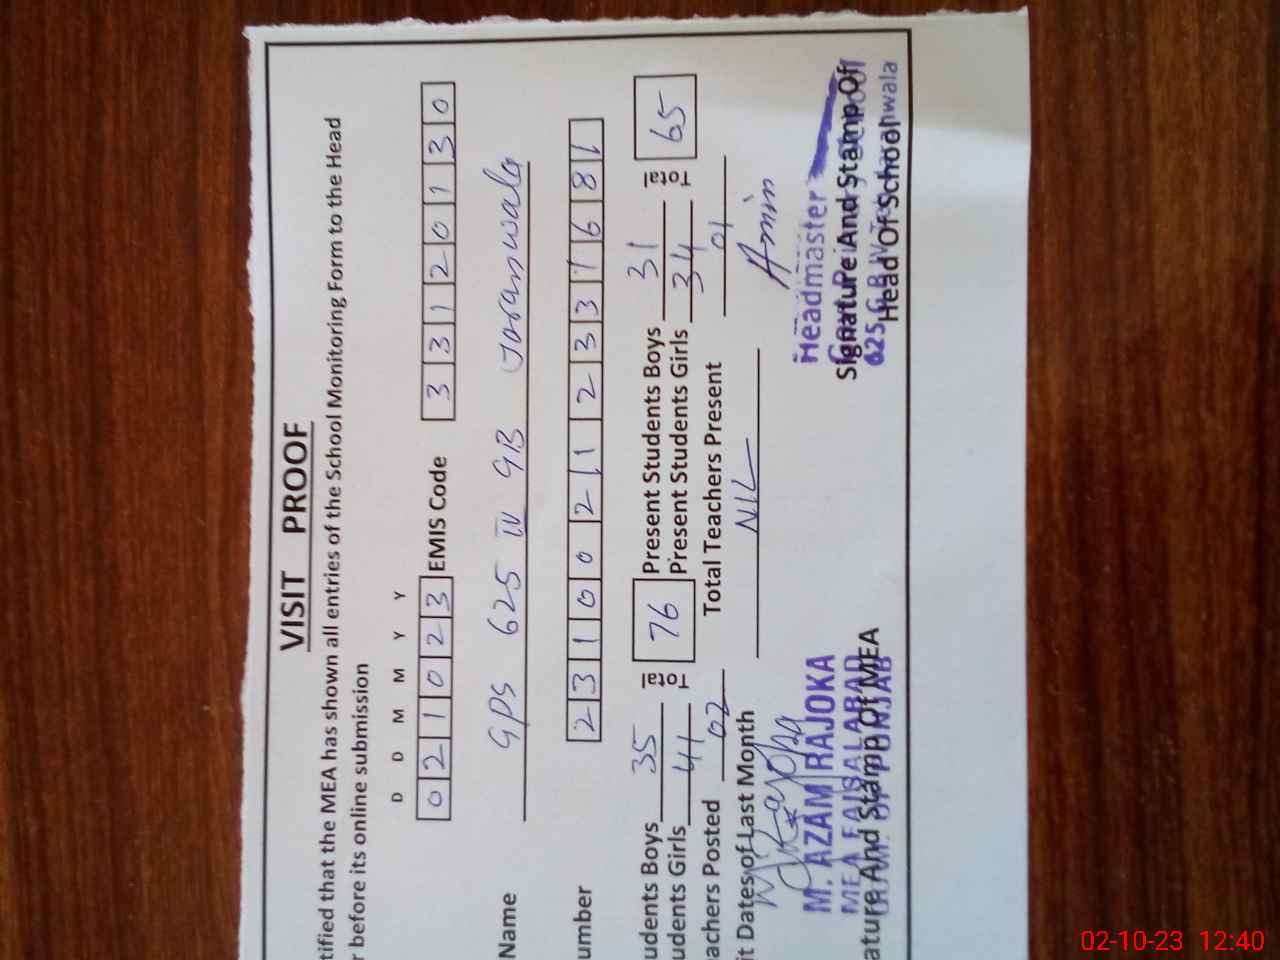 VISIT PROOF
tified that the MEA has shown all entries of the School Monitoring Form to the Head
r before its online submission
D D M M Y Y
0 2 1 0 2 3 EMIS Code 3 3 1 2 0 1 3 0
Name GPS 625 IV GB Jaranwala
umber 2 3 1 0 0 2 1 2 3 3 1 6 8 1
udents Boys 35 Total 76 Present Students Boys 31 Total 65
udents Girls 41 Present Students Girls 34
achers Posted 02 Total Teachers Present 01
it Dates of Last Month NIL
Amin
M. AZAM RAJOKA Headmaster
MEA FAISALABAD
PUNJAB 625 G.B
ature And Stamp Of MEA Signature And Stamp Of
Head Of School
02-10-23 12:40